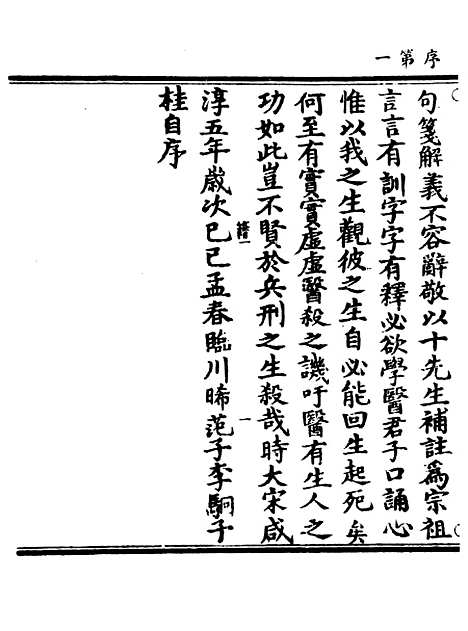 序第一
句箋解義不容辭敬以十先生補註爲宗祖
言言有訓字字有釋必欲學醫君子口誦心
惟以我之生觀彼之生自必能回生起死矣
何至有實實虛虛醫殺之譏吁醫有生人之
功如此豈不賢於兵刑之生殺哉時大宋咸
淳五年歲次己巳孟春臨川晞范子李駉子
桂自序
一